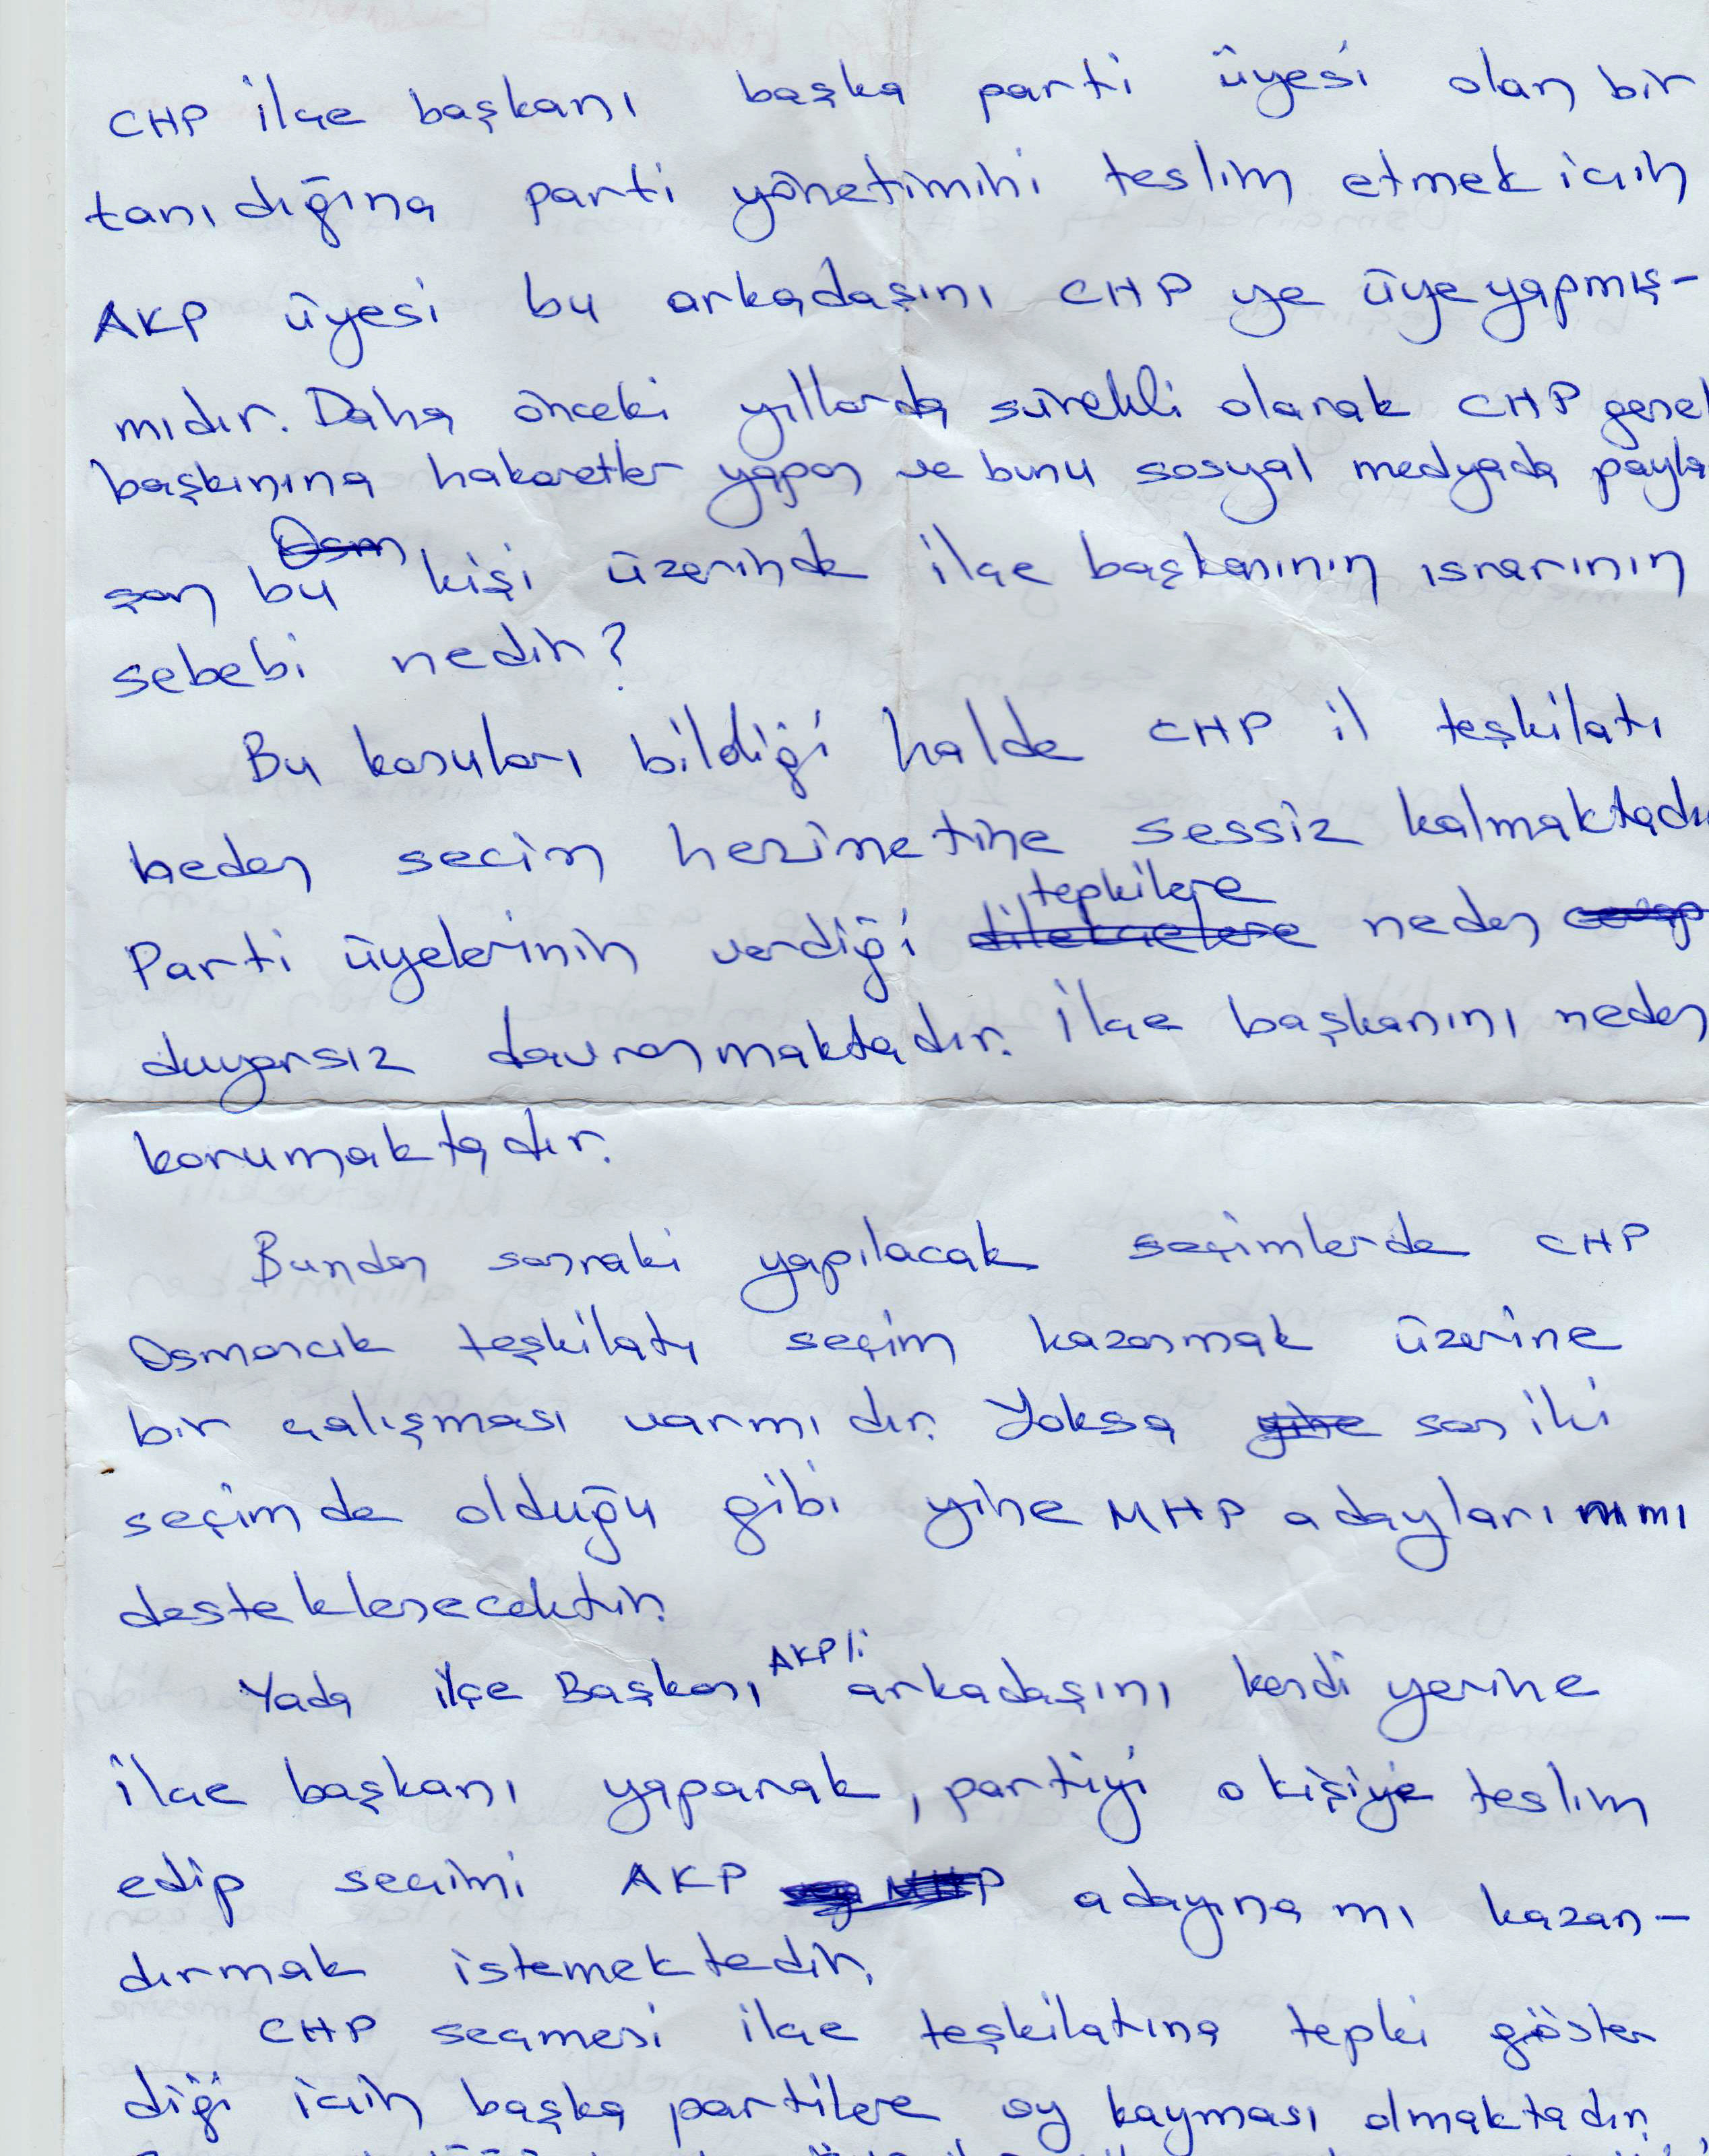 CHP ilçe başkanı başka parti üyesi olan bir
tanıdığına parti yönetimini teslim etmek için
AKP üyesi bu arkadaşını CHP ye üye yapmış-
mıdır. Daha önceki yıllarda sürekli olarak CHP genel
başkınına hakaretler yapan ve bunu sosyal medyada payla
Osm
şan bu kişi üzerinde ilçe başkanının ısrarının
sebebi nedir?
Bu konuları bildiği halde CHP il teşkilatı
neden seçim hezimetine sessiz kalmaktadır
tepkilere
Parti üyelerinin verdiği dilekçelere neden cevap
duyarsız davranmaktadır. İlçe başkanını neden
korumaktadır.
Bundan sonraki yapılacak seçimlerde CHP
Osmancık teşkilatı seçim kazanmak üzerine
bir çalışması varmıdır. Yoksa yine son iki
seçimde olduğu gibi yine MHP adaylarınımı
desteklenecektir.
AKP li
Yada ilçe Başkanı arkadaşını kendi yerine
ilçe başkanı yaparak, partiyi o kişiye teslim
edip seçimi AKP adayına mı kazan-
dırmak istemektedir.
CHP seçmeni ilçe teşkilatına tepki göster
diği için başka partilere oy kayması olmaktadır.